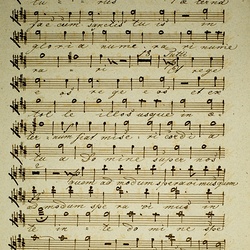 tu - - - e - rus AE terna
fac cum sanctis tu is in
glori a nume ra ri nume
ra - - ri Et rege
e os re ge os et ex
tol le illos usque in ae
ter num fiat mise ri cor di a
tu a Domine super nos
quem ad modum speravimus quem
admodum spe ra vi mus in
te in te do mi ne